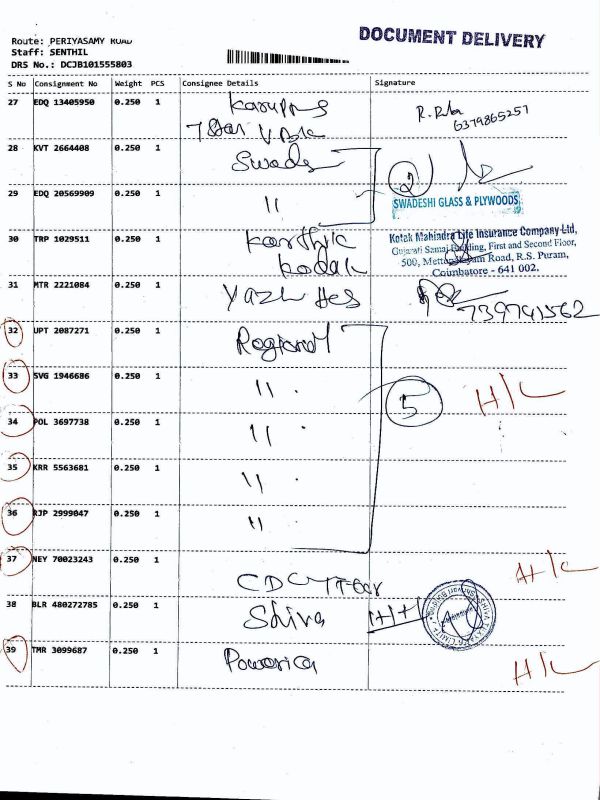 DOCUMENT DELIVERY
Route: PERIYASAMY ROAD
Staff: SENTHIL
DRS No.: DCJB101555803
S No Consignment No Weight PCS Consignee Details Signature
27 EDQ 13405950 0.250 1
6379865257
28 KVT 2664408 0.250 1 Swade 2
29 EDQ 20569909 0.250 1 "
SWADESHI GLASS & PLYWOODS
30 TRP 1029511 0.250 1 Karthik
Kodak
Kotak Mahindra Life Insurance Company Ltd,
Gujarati Samaj Building, First and Second Floor,
500, Mettupalayam Road, R.S. Puram,
Coimbatore - 641 002.
31 MTR 2221084 0.250 1 Yazh
739741562
32 UPT 2087271 0.250 1 Regional
33 SVG 1946686 0.250 1 " 5 H/C
34 POL 3697738 0.250 1 "
35 KRR 5563681 0.250 1 "
36 RJP 2999047 0.250 1 "
37 NEY 70023243 0.250 1 H/C
38 BLR 480272785 0.250 1 Shiva
39 TMR 3099687 0.250 1 Powerica H/C